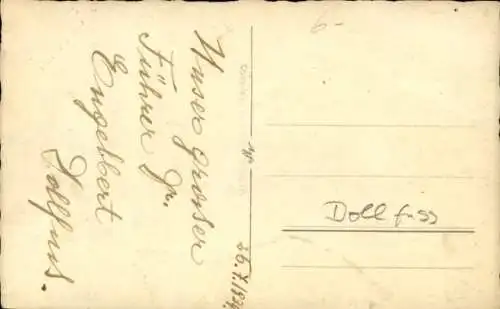 Unser groser
Führer Dr.
Engelbert
Dollfus.
26.7.1934
6-
Dollfuss